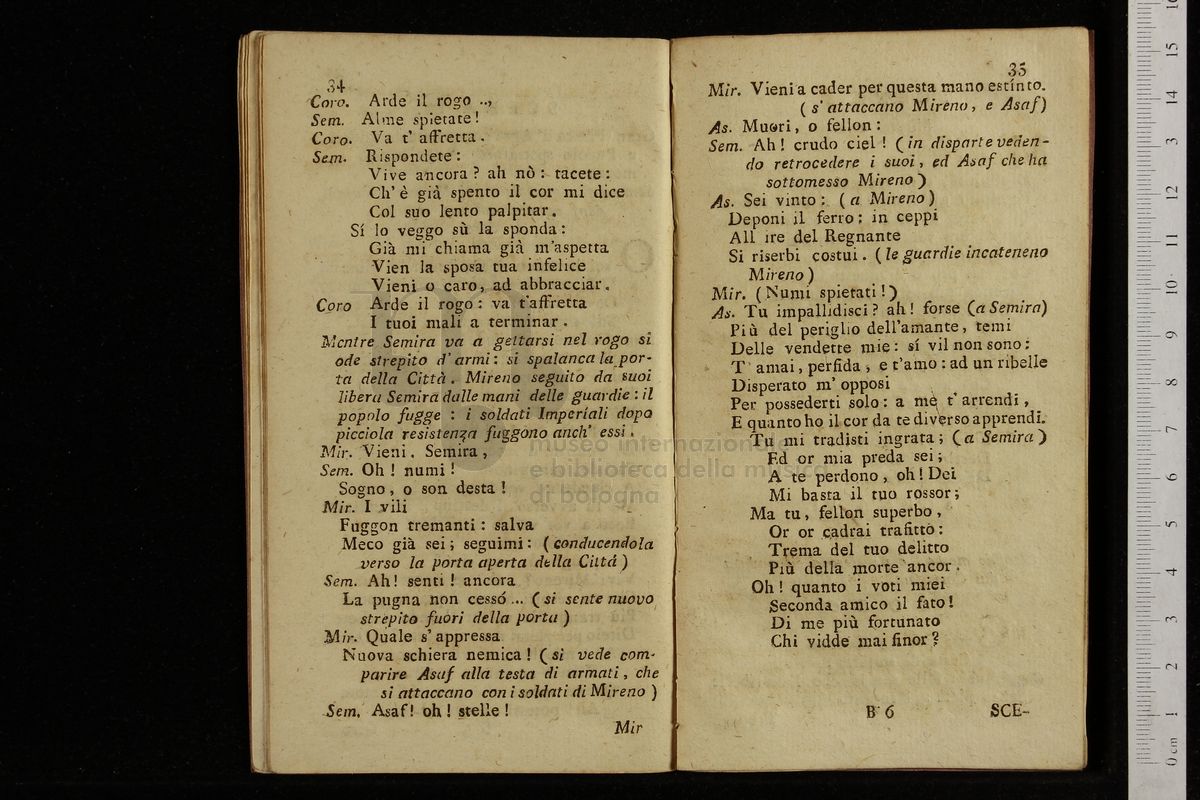 34
Coro. Arde il rogo ..,
Sem. Alme spietate!
Coro. Va t' affretta.
Sem. Rispondete:
Vive ancora? ah nò: tacete:
Ch' è già spento il cor mi dice
Col suo lento palpitar.
Sí lo veggo sù la sponda:
Già mi chiama già m'aspetta
Vien la sposa tua infelice
Vieni o caro, ad abbracciar.
Coro Arde il rogo: va t'affretta
I tuoi mali a terminar.
Mentre Semira va a gettarsi nel rogo si
ode strepito d' armi: si spalanca la por-
ta della Città. Mireno seguito da suoi
libera Semira dalle mani delle guardie: il
popolo fugge : i soldati Imperiali dopo
picciola resistenza fuggono anch' essi.
Mir. Vieni. Semira,
Sem. Oh! numi!
Sogno, o son desta!
Mir. I vili
Fuggon tremanti: salva
Meco già sei; seguimi: (conducendola
verso la porta aperta della Città)
Sem. Ah! senti! ancora
La pugna non cessó... (si sente nuovo
strepito fuori della porta)
Mir. Quale s' appressa
Nuova schiera nemica! (si vede com-
parire Asaf alla testa di armati, che
si attaccano con i soldati di Mireno)
Sem. Asaf! oh! stelle!
Mir
35
Mir. Vieni a cader per questa mano estinto.
(s' attaccano Mireno, e Asaf)
As. Muori, o fellon:
Sem. Ah! crudo ciel! (in disparte veden-
do retrocedere i suoi, ed Asaf che ha
sottomesso Mireno)
As. Sei vinto: (a Mireno)
Deponi il ferro: in ceppi
All ire del Regnante
Si riserbi costui. (le guardie incateneno
Mireno)
Mir. (Numi spietati!)
As. Tu impallidisci? ah! forse (a Semira)
Più del periglio dell'amante, temi
Delle vendette mie: sí vil non sono:
T' amai, perfida, e t'amo: ad un ribelle
Disperato m' opposi
Per possederti solo: a me t' arrendi,
E quanto ho il cor da te diverso apprendi.
Tu mi tradisti ingrata; (a Semira)
Ed or mia preda sei;
A te perdono, oh! Dei
Mi basta il tuo rossor;
Ma tu, fellon superbo,
Or or cadrai trafitto:
Trema del tuo delitto
Più della morte ancor.
Oh! quanto i voti miei
Seconda amico il fato!
Di me più fortunato
Chi vidde mai finor?
B 6 SCE-
museo internazionale
e biblioteca della musica
di bologna